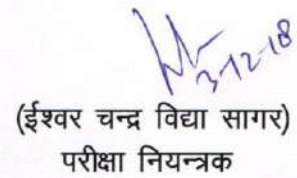 3-12-18
(ईश्वर चन्द्र विद्या सागर)
परीक्षा नियन्त्रक